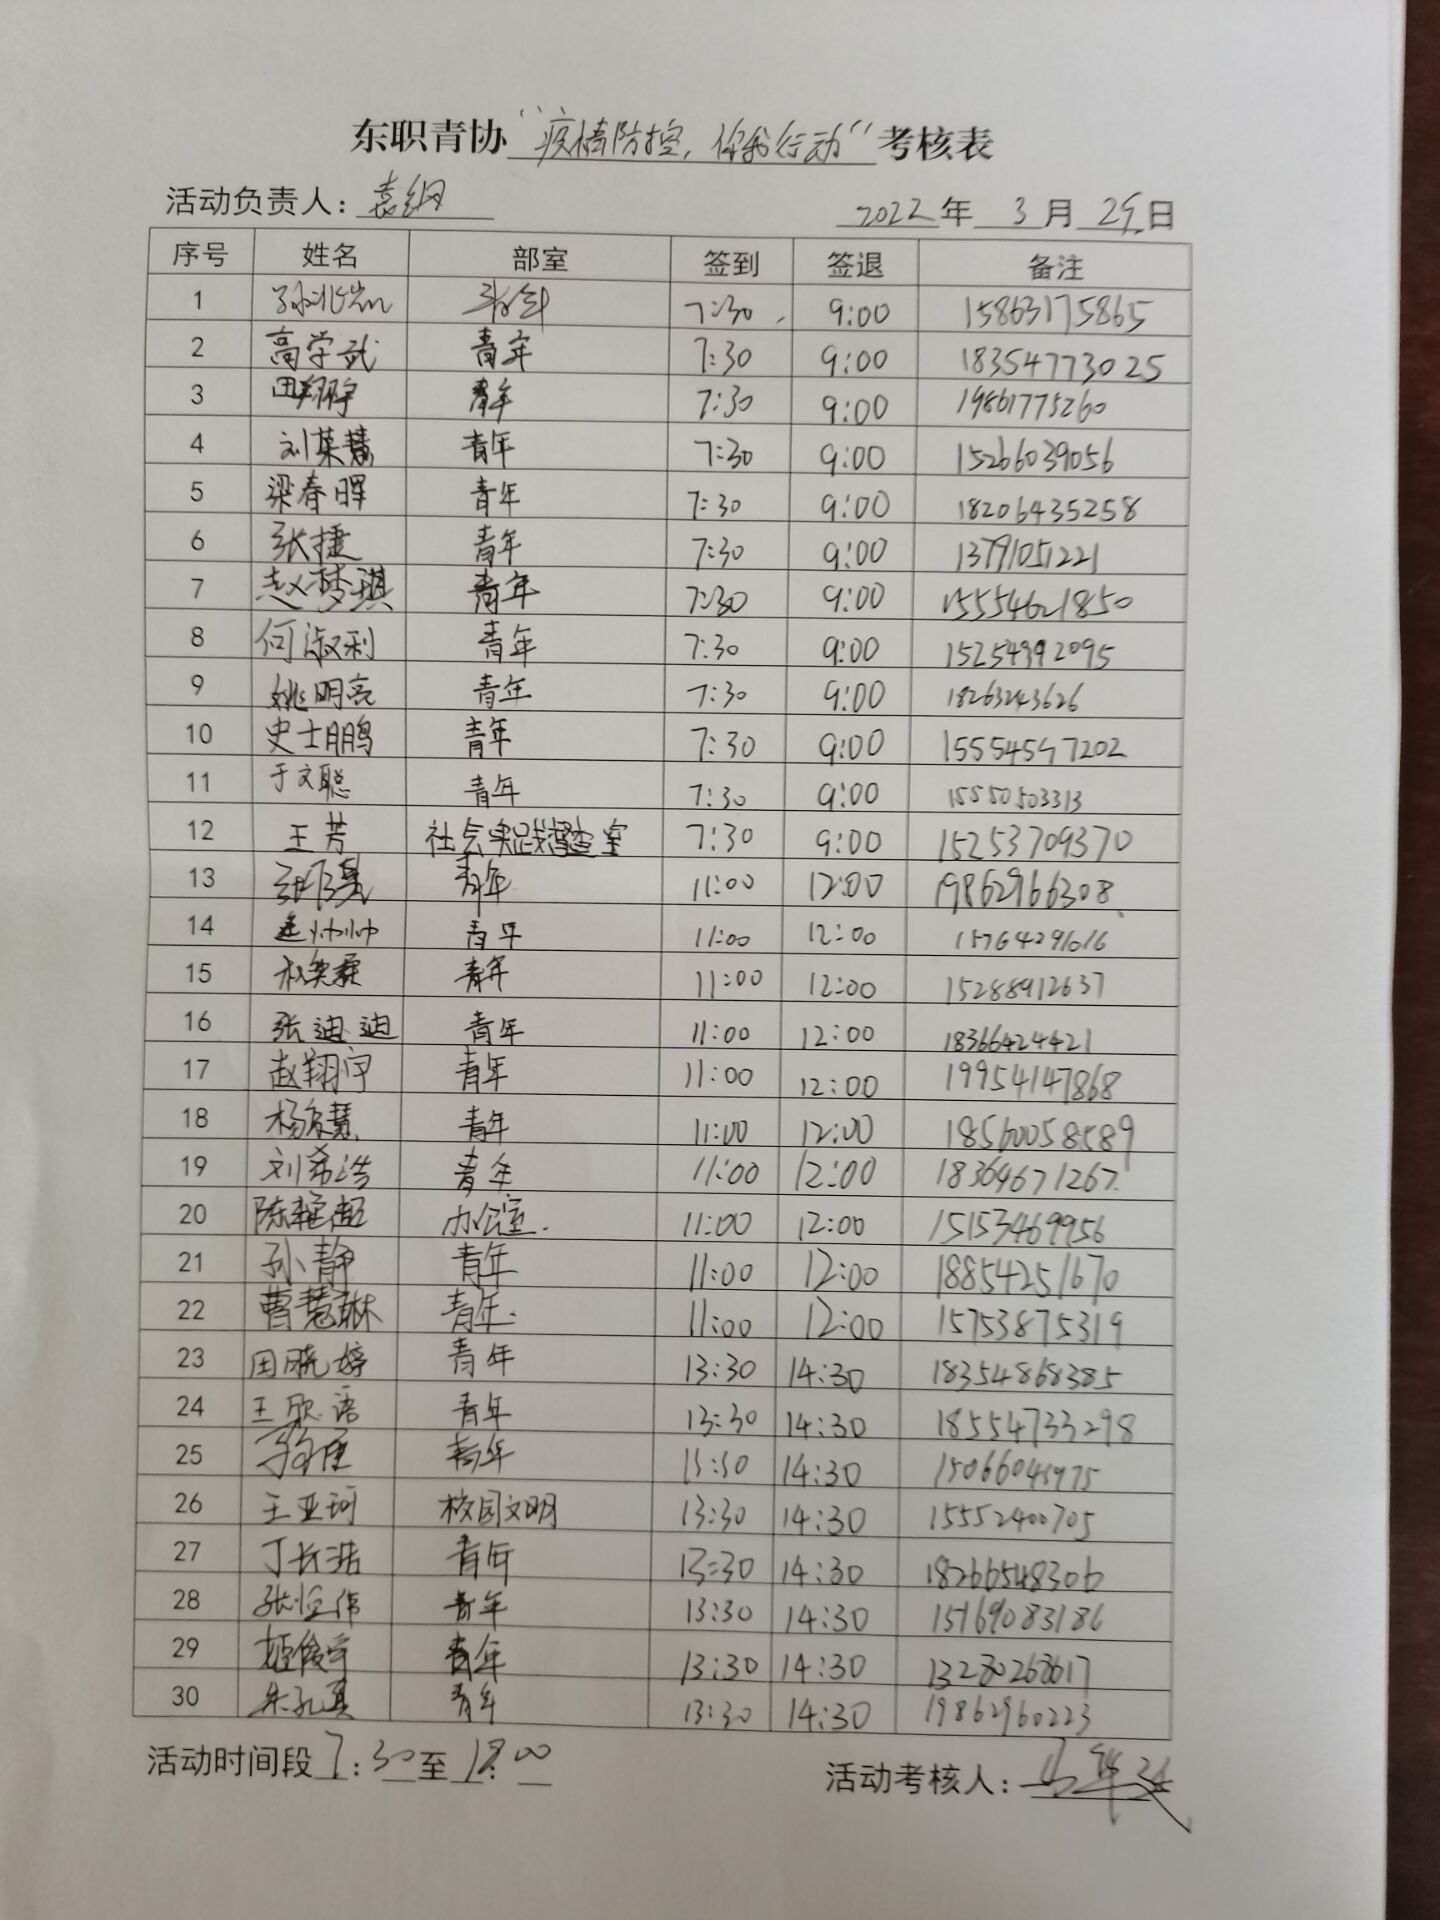 东职青协“疫情防控,你我行动”考核表
活动负责人: 袁纲 2022年 3月 25日
序号 姓名 部室 签到 签退 备注
1 7:30 9:00 15863175865
2 高学武 青年 7:30 9:00 18354773025
3 田翔宇 青年 7:30 9:00 19861775260
4 刘英慧 青年 7:30 9:00 15266039056
5 梁春晖 青年 7:30 9:00 18206435258
6 张捷 青年 7:30 9:00 13791051221
7 赵梦琪 青年 7:30 9:00 15554621850
8 何淑利 青年 7:30 9:00 15254992095
9 姚明亮 青年 7:30 9:00 18263243626
10 史士鹏 青年 7:30 9:00 15554547202
11 于文聪 青年 7:30 9:00 15550503313
12 王芳 社会实践督查室 7:30 9:00 15253709370
13 青年 11:00 12:00 19862966308
14 青年 11:00 12:00 15764291616
15 青年 11:00 12:00 15288912637
16 张迪迪 青年 11:00 12:00 18366424421
17 赵翔宇 青年 11:00 12:00 19954147868
18 青年 11:00 12:00 18560058589
19 刘希浩 青年 11:00 12:00 18364671267
20 陈艳超 办公室. 11:00 12:00 15153469956
21 孙静 青年 11:00 12:00 18854251670
22 曹慧琳 青年 11:00 12:00 15753875319
23 田晓婷 青年 13:30 14:30 18354868385
24 王欣语 青年 13:30 14:30 18554733298
25 青年 13:30 14:30 15066045975
26 王亚珂 校园文明 13:30 14:30 15552400705
27 丁长浩 青年 13:30 14:30 18266548306
28 张恒伟 青年 13:30 14:30 15169083186
29 姬俊宇 青年 13:30 14:30 13280268617
30 朱孔真 青年 13:30 14:30 19862960223
活动时间段 7:30至18:00
活动考核人: